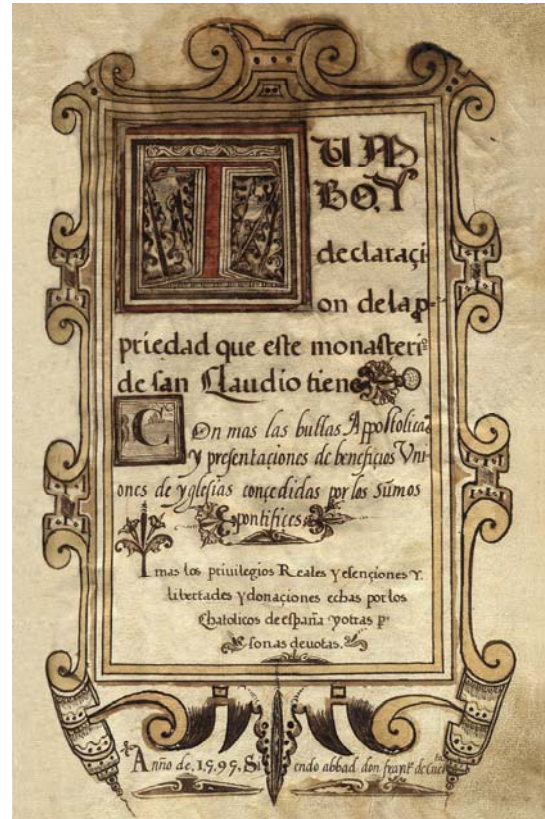 TUM
BO. Y
declaraçi
on de la p
priedad que este monasterio
de san Claudio tiene
Con mas las bullas Appostolicas
y presentaciones de beneficios Vni
ones de yglesias conçedidas por los Sumos
pontifices
mas los priuilegios Reales y esençiones Y
libertades y donaçiones echas por los
Chatolicos de españa y otras p
sonas deuotas.
Anño de. 1.5.9.5. Siendo abbad don franco de